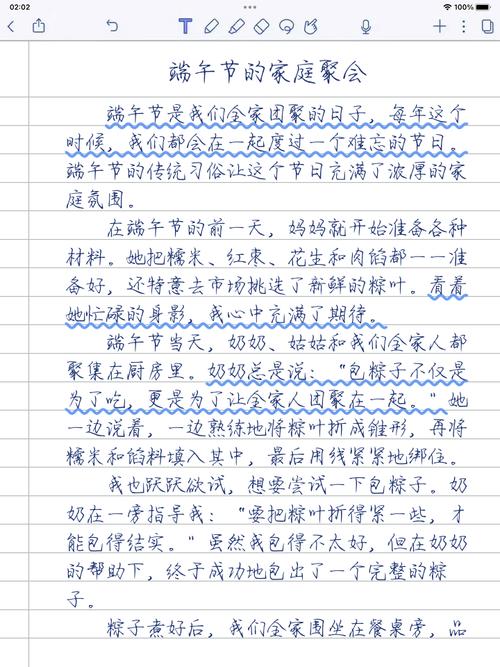 02:02
100%
端午节的家庭聚会
端午节是我们全家团聚的日子，每年这个
时候，我们都会在一起度过一个难忘的节日。
端午节的传统习俗让这个节日充满了浓厚的家
庭氛围。
在端午节的前一天，妈妈就开始准备各种
材料。她把糯米、红枣、花生和肉馅都一一准
备好，还特意去市场挑选了新鲜的粽叶。看着
她忙碌的身影，我心中充满了期待。
端午节当天，奶奶、姑姑和我们全家人都
聚集在厨房里。奶奶总是说：“包粽子不仅是
为了吃，更是为了让全家人团聚在一起。”她
一边说着，一边熟练地将粽叶折成锥形，再将
糯米和馅料填入其中，最后用线紧紧地绑住。
我也跃跃欲试，想要尝试一下包粽子。奶
奶在一旁指导我：“要把粽叶折得紧一些，才
能包得结实。”虽然我包得不太好，但在奶奶
的帮助下，终于成功地包出了一个完整的粽
子。
粽子煮好后，我们全家围坐在餐桌旁，品